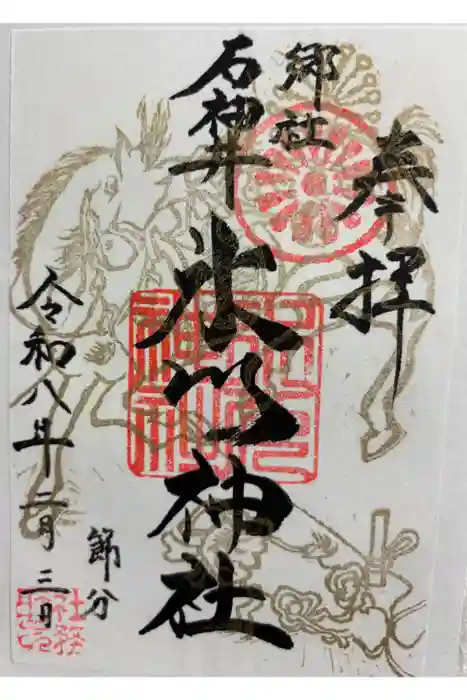 奉拝
郷社
石神井
氷川神社
令和八年二月三日
節分
社務